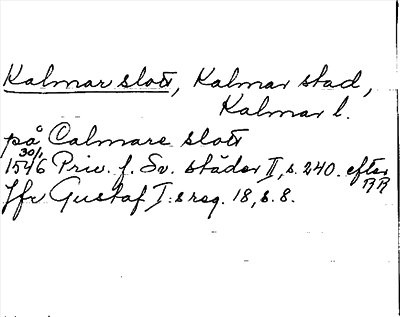 Kalmar slott, Kalmar stad,
Kalmar l.
på Calmare slott
30/1
1546 Priv. f. Sv. städer II, s. 240. efter RR
Jfr Gustaf I:s reg. 18, s. 8.